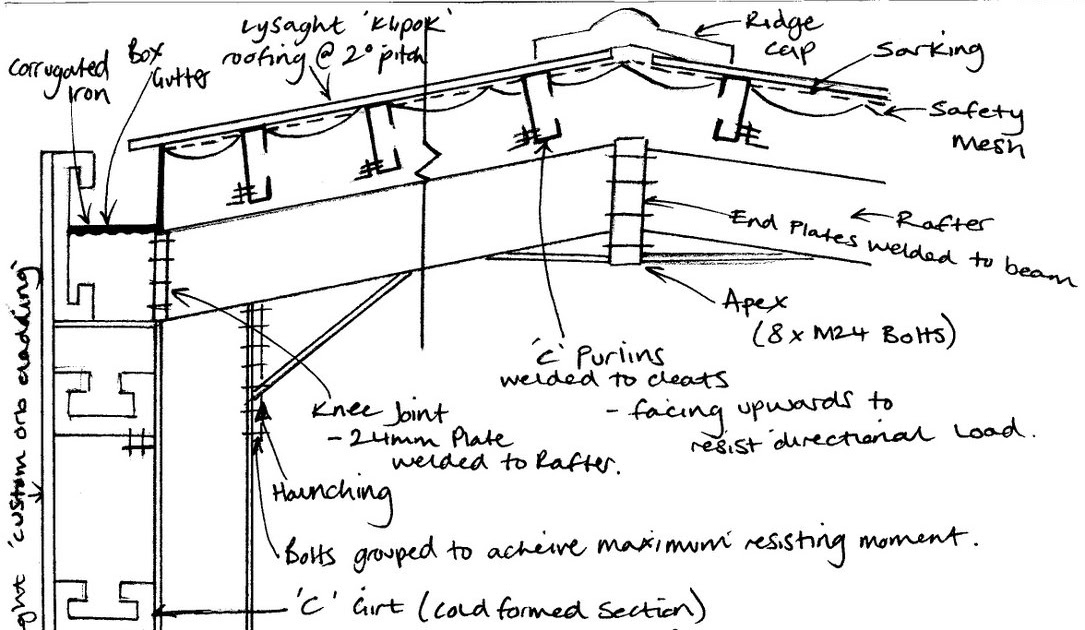 Lysaght 'Klipok'
roofing @ 2° pitch
Ridge
cap
Sarking
Box
Gutter
Corrugated
Iron
Safety
Mesh
Rafter
End Plates welded to beam
Apex
(8 x M24 Bolts)
'C' Purlins
welded to cleats
- facing upwards to
resist directional load.
Knee Joint
- 24mm Plate
welded to Rafter.
Haunching
Bolts grouped to acheive maximum resisting moment.
'C' Girt (cold formed section)
ght 'custom orb cladding'